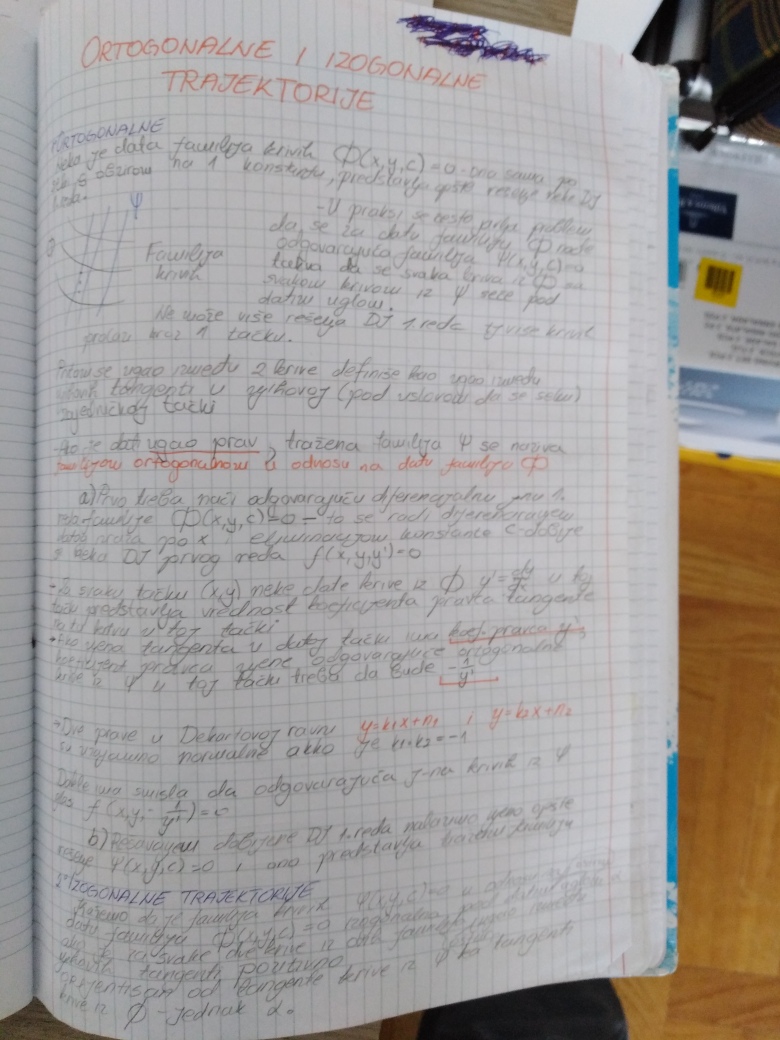 ORTOGONALNE I IZOGONALNE
TRAJEKTORIJE
ORTOGONALNE
Neka je data familija krivih Φ(x,y,c)=0 - ona sama po
sebi, s obzirom na 1 konstantu, predstavlja opšte rešenje neke DJ
1.reda.
Ψ
- U praksi se često javlja problem
da se za datu familiju Φ nađe
odgovarajuća familija Ψ(x,y,c)=0
takva da se svaka kriva iz Φ sa
svakom krivom iz Ψ seče pod
datim uglom.
Familija
krivih
Ne može više rešenja DJ 1.reda tj više krivih
prolazi kroz 1 tačku.
Pritom se ugao između 2 krive definiše kao ugao između
njihovih tangenti u njihovoj (pod uslovom da se seku)
zajedničkoj tački
Ako je dat ugao prav, tražena familija Ψ se naziva
familijom ortogonalnom u odnosu na datu familiju Φ
a) Prvo treba naći odgovarajuću diferencijalnu j-nu 1.
reda familije Φ(x,y,c)=0 – to se radi diferenciranjem
po x eliminacijom konstante c dobije
se neka DJ prvog reda f(x,y,y')=0
- Za svaku tačku (x,y) neke date krive iz Φ y'=dy/dx u toj
tački predstavlja vrednost koeficijenta pravca tangente
na tu krivu u toj tački
• Ako njena tangenta u datoj tački ima koef. pravca y',
koeficijent pravca njene odgovarajuće ortogonalne
krive iz Ψ u toj tački treba da bude -1/y'
→ Dve prave u Dekartovoj ravni y=k₁x+n₁ i y=k₂x+n₂
su uzajamno normalne akko je k₁·k₂=-1
Dakle ima smisla da odgovarajuća j-na krivih iz Ψ
glasi f(x,y,-1/y')=0
b) Rešavanjem dobijene DJ 1.reda nalazimo njeno opšte
rešenje Ψ(x,y,c)=0 i ono predstavlja traženu familiju
2° IZOGONALNE TRAJEKTORIJE
Kažemo da je familija krivih Ψ(x,y,c)=0 u odnosu na
datu familiju Φ(x,y,c)=0 izogonalna pod uglom α
ako je za svake dve krive iz datih familija ugao između
njihovih tangenti, pozitivno
orijentisan od tangente krive iz Ψ ka tangenti
krive iz Φ - jednak α.